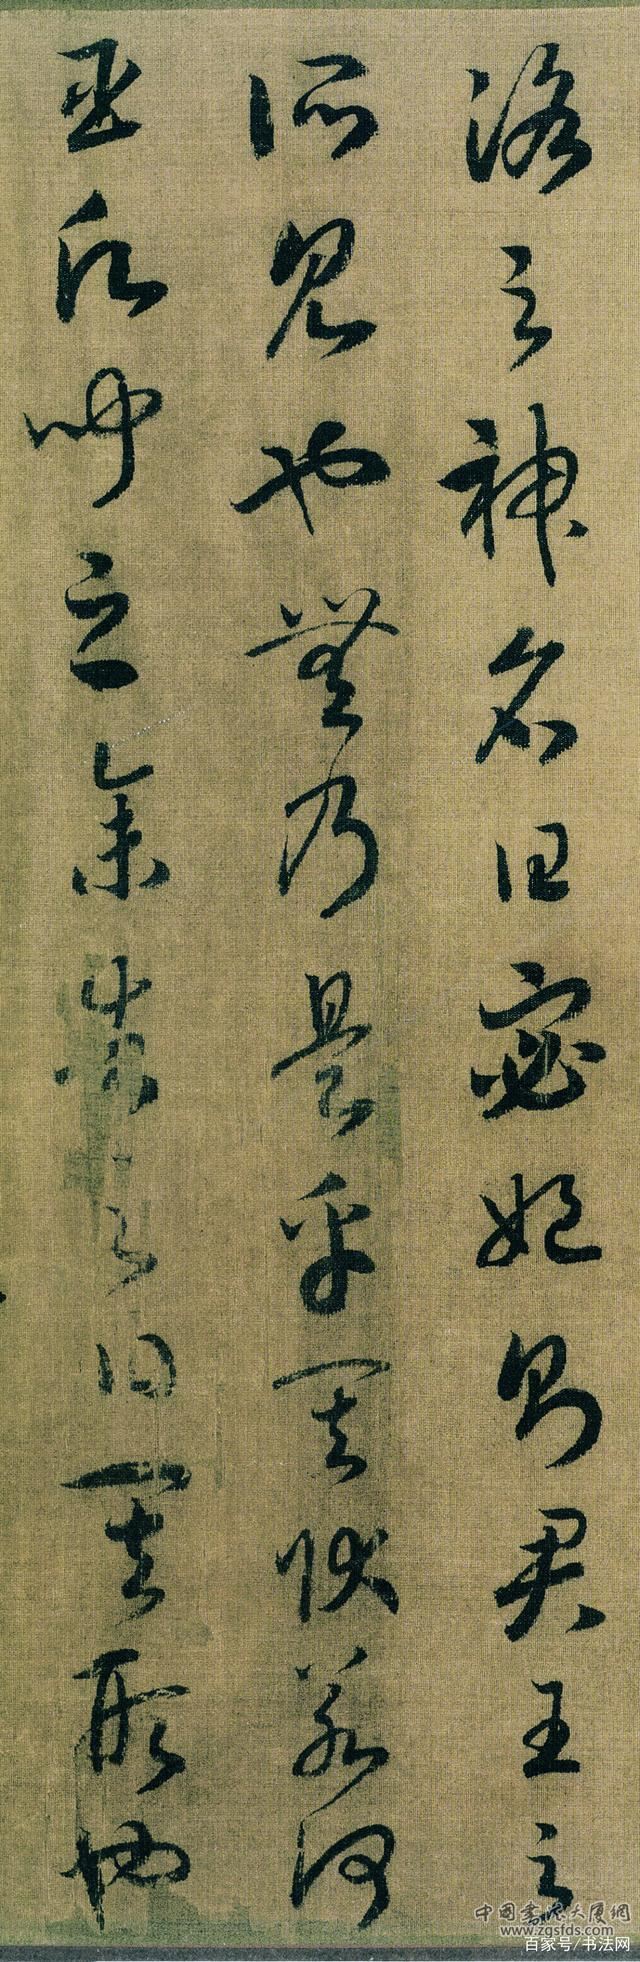 洛之神名曰宓妃則君王之
所見也無乃是乎其狀若何
臣願聞之余告之曰其形也
中国书法大厦网
www.zgsfds.com
百家号/书法网